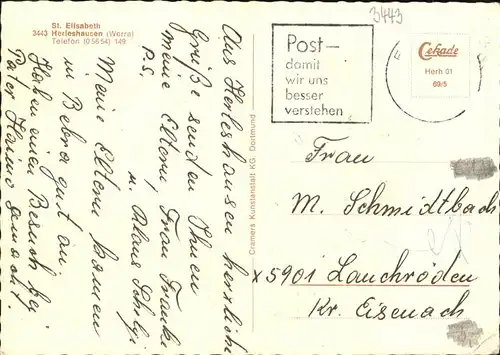 St. Elisabeth
3443 Herleshausen (Werra)
Telefon (05654) 149
Aus Herleshausen herzliche
Grüße senden Ihnen
meine Eltern, Frau Franke
u. Klaus
P.S.
Meine Eltern kamen
in Bebra gut an.
Haben einen Besuch bei
Pater Heimo gemacht.
Cramers Kunstanstalt KG, Dortmund
3443
Post –
damit
wir uns
besser
verstehen
Cekade
Herh 01
69/5
Frau
M. Schmidtbach
x 5901 Lauchröden
Kr. Eisenach